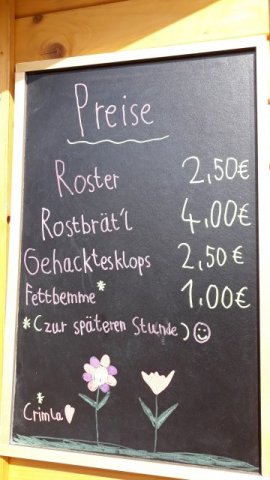 Preise
Roster 2,50€
Rostbrät'l 4,00€
Gehacktesklops 2,50€
Fettbemme* 1,00€
*(zur späteren Stunde)☺
Crimla